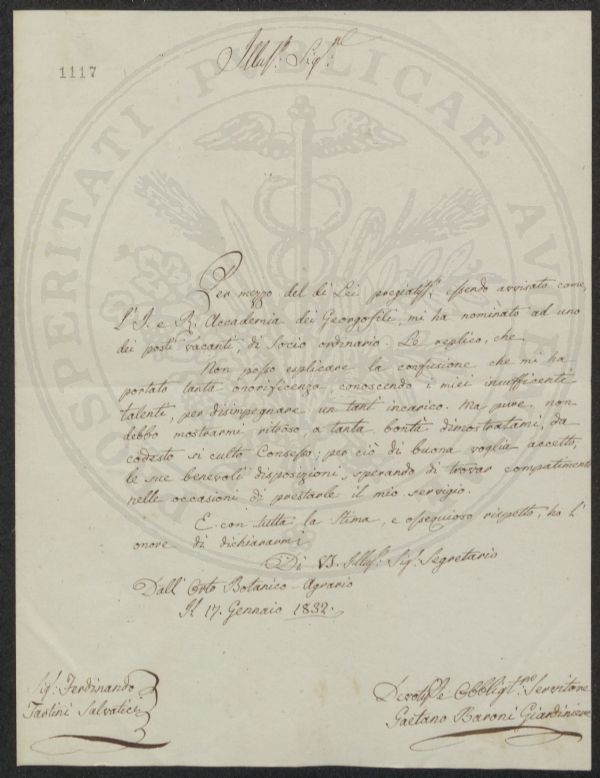 1117
Illus.º Sig.re
PROSPERITATI PUBLICAE AUGENDAE
Per mezzo del di Lei pregiatiss.º essendo avvisato come
L'I. e R. Accademia dei Georgofili, mi ha nominato ad uno
dei posti vacanti, di Socio ordinario. Le replico, che
Non posso esplicare la confusione che mi ha
portato tanta onorificenza, conoscendo i miei insufficenti
talenti, per disimpegnare un tant' incarico. Ma pure, non
debbo mostrarmi ritroso, a tanta bontà dimostratami, da
codesto sì culto Consesso; per ciò di buona voglia accetto,
le sue benevoli disposizioni, sperando di trovar compatimento
nelle occasioni di prestarle il mio servigio.
E con tutta la stima, e ossequioso rispetto, ho l'
onore di dichiararmi
Di VS. Illus.ª Sig.ª Segretario
Dall' Orto Botanico-Agrario
Il 17. Gennaio 1832.
Sig.ª Ferdinando
Tartini Salvatici
Devotiss.e Obbligt.mo Servitore
Gaetano Baroni Giardiniere